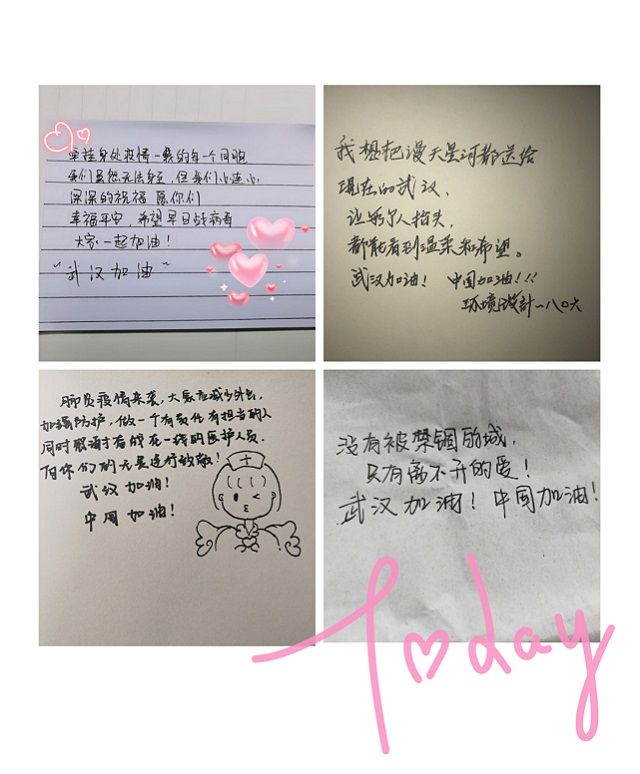 牵挂身处疫情一线的每一个同胞
我们虽然无法身至，但我们心连心
深深的祝福 愿你们
幸福平安，希望早日战病毒
大家一起加油！
“武汉加油”
我想把漫天星河都送给
现在的武汉、
让所有人抬头，
都能看到温柔和希望。
武汉加油！ 中国加油！！！
环境設計一八〇六
疫情来袭，大家应减少外出，
加强防护，做一个有责任有担当的人
同时 在一线的医护人员.
向你们的无畏逆行致敬！
武汉加油！
中国加油！
没有被禁锢的城，
只有离不开的爱！
武汉加油！中国加油！
Today